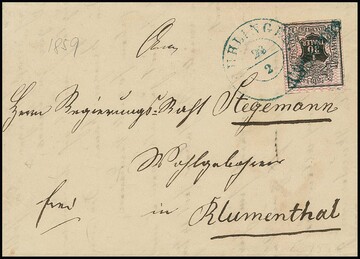 1859
An
UHLINGE
22
2
30
THALER
Herrn Regierungs-Rath Stegemann
Wohlgeboren
frei
in Blumenthal